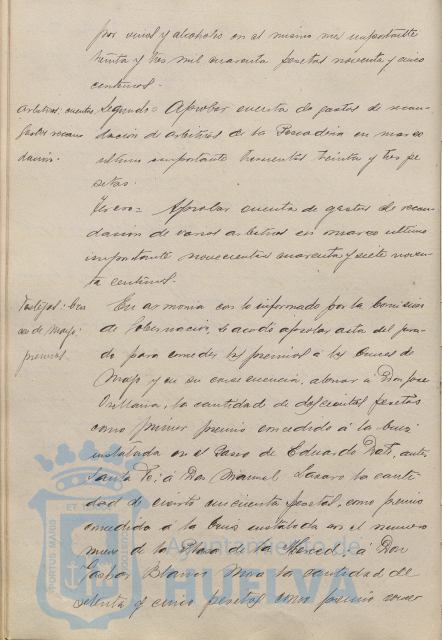 por vinos y alcoholes en el mismo mes importante
treinta y tres mil cuarenta pesetas noventa y cinco
centimos.
Arbitrios: cuentas
gastos recau
dación.
Segundo= Aprobar cuenta de gastos de recau
dacion de arbitrios de la Pescaderia en marzo
ultimo importante trescientas treinta y tres pe
setas.
Tercero= Aprobar cuenta de gastos de recau
dacion de varios arbitrios en marzo ultimo
importante novecientas cuarenta y siete noven
ta centimos.
Festejos: Cru
ces de Mayo:
premios.
En armonia con lo informado por la Comision
de Gobernacion, se acordó aprobar acta del jura
do para conceder los premios á las Cruces de
Mayo y en su consecuencia, abonar á Don Jose
Orellana, la cantidad de doscientas pesetas
como primer premio concedido á la Cruz
instalada en el Paseo de Eduardo Dato, antes
Santa Fé; á Don Manuel Lazaro la canti
dad de ciento cincuenta pesetas, como premio
concedido á la Cruz instalada en el numero
nueve de la Plaza de la Merced; á Don
Gaspar Blanco Mora la cantidad de
setenta y cinco pesetas como premio conce
PORTUS MARIS ET
Ayuntamiento de
HUELVA